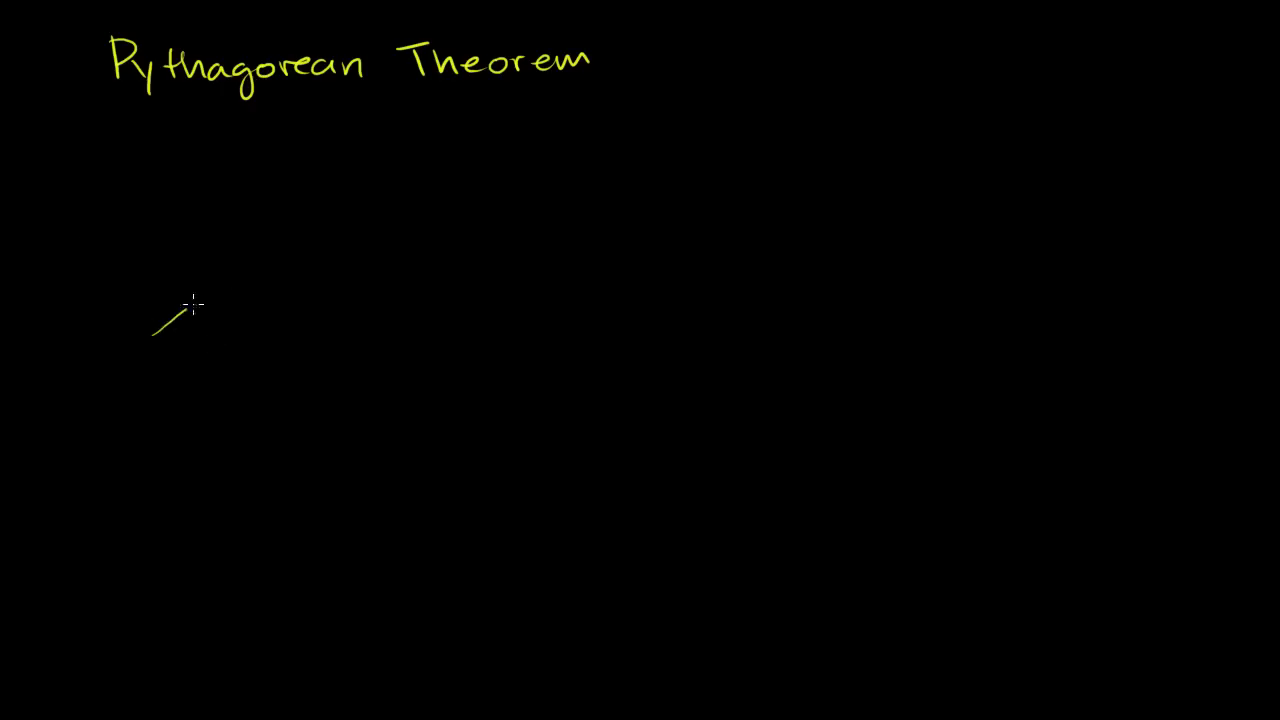 Pythagorean Theorem